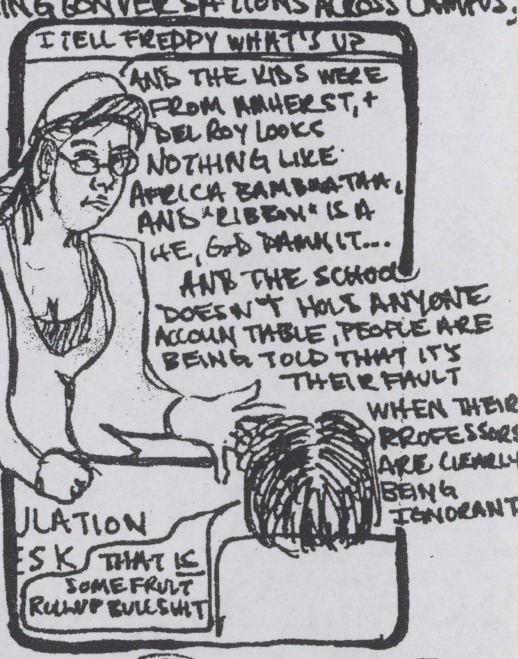 ING CONVERSATIONS ACROSS CAMPUS,
I TELL FREDDY WHAT'S UP
AND THE KIDS WERE
FROM AMHERST, +
DEL ROY LOOKS
NOTHING LIKE
AFRICA BAMBAATAA,
AND "RIBBON" IS A
HE, GOD DAMN IT....
AND THE SCHOOL
DOESN'T HOLD ANYONE
ACCOUNTABLE, PEOPLE ARE
BEING TOLD THAT IT'S
THEIR FAULT
WHEN THEIR
PROFESSORS
ARE CLEARLY
BEING
IGNORANT
ULATION
ESK
THAT IS
SOME FRUIT
ROLLUP BULLSHIT